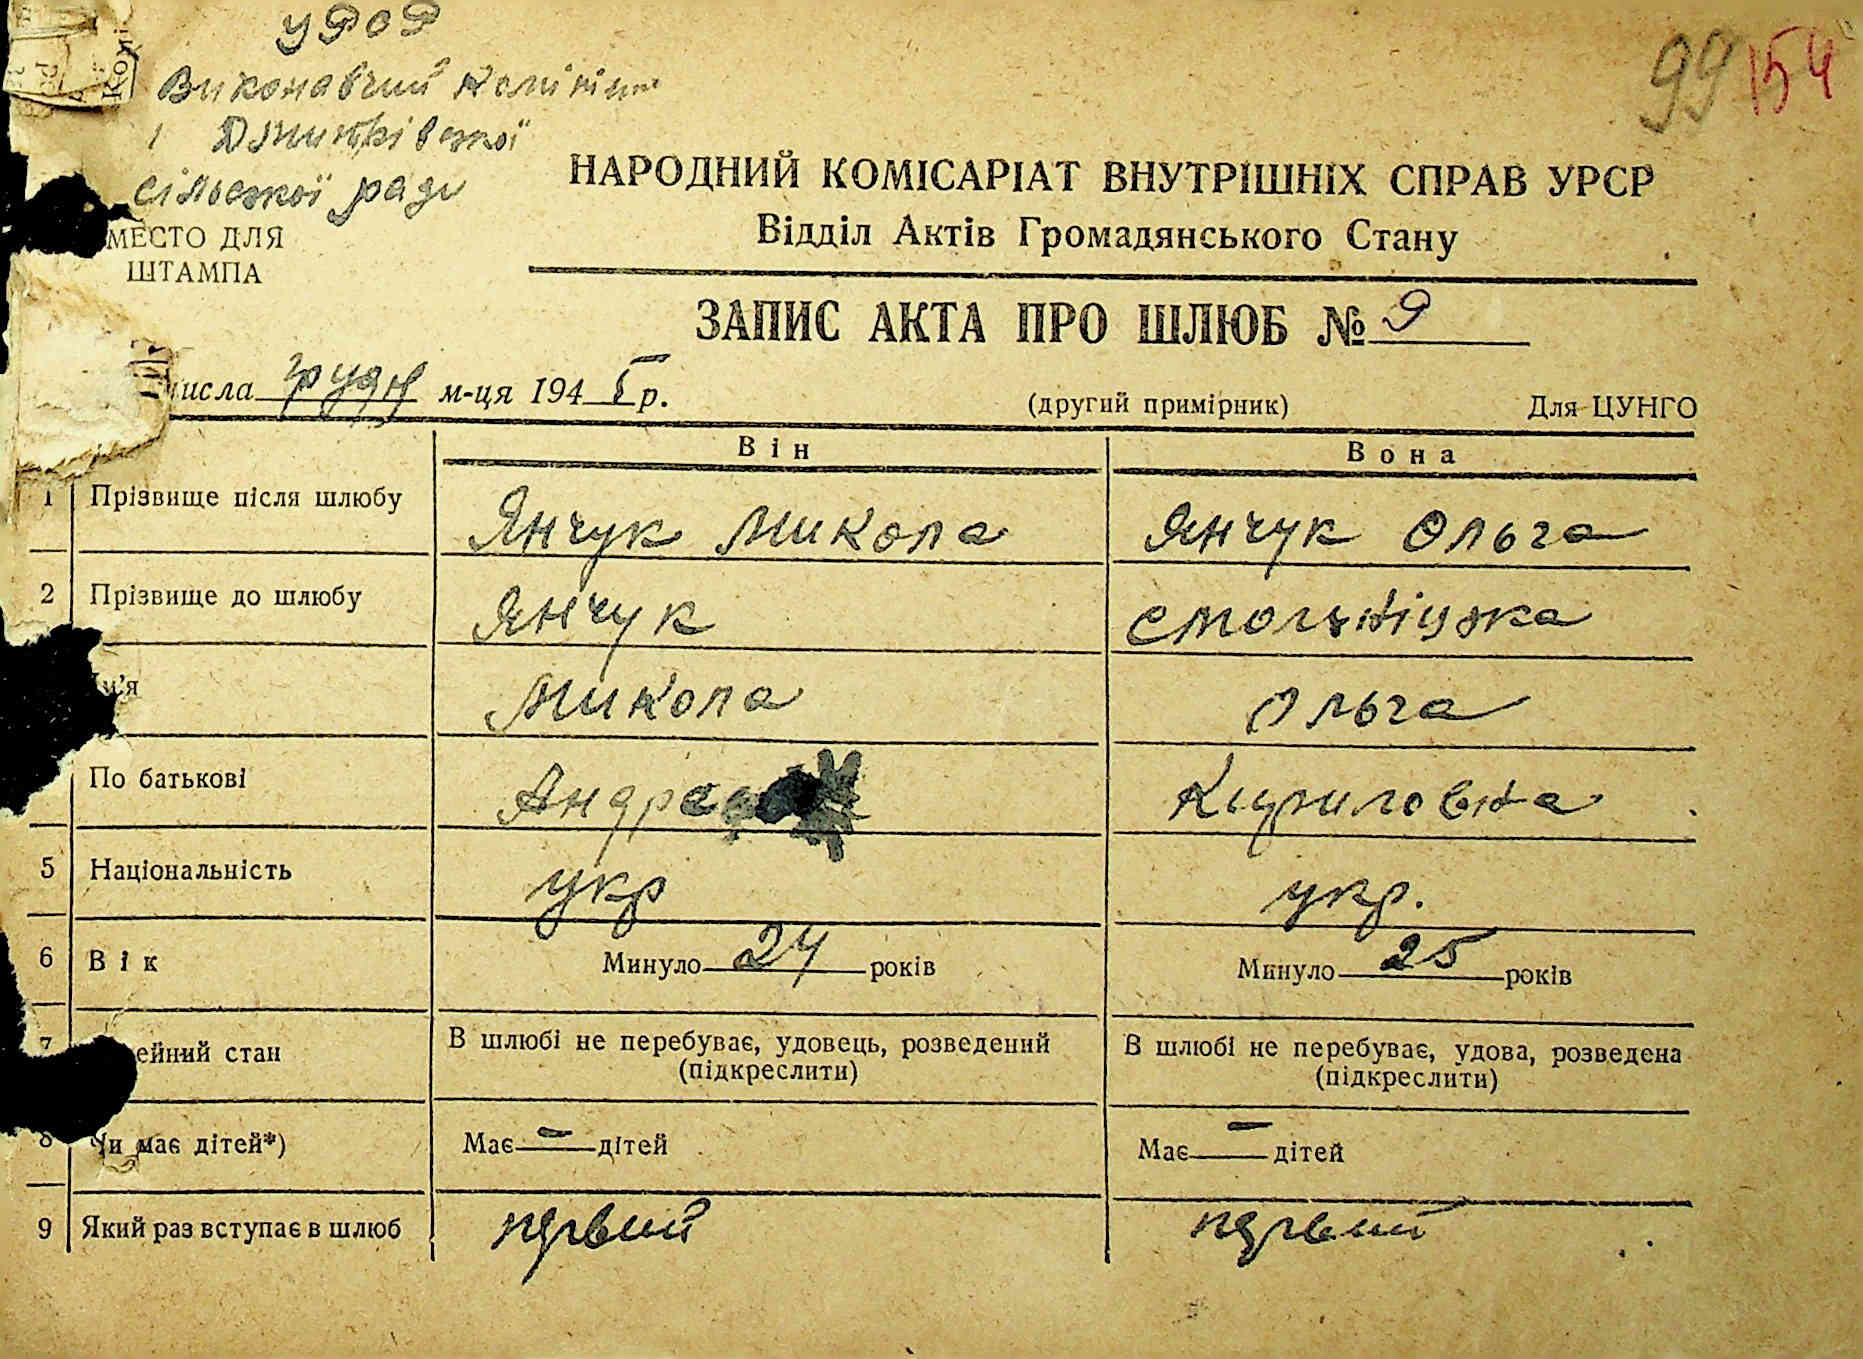 99 154
Виконавчий Комітет
сільської ради
НАРОДНИЙ КОМІСАРІАТ ВНУТРІШНІХ СПРАВ УРСР
Відділ Актів Громадянського Стану
МЕСТО ДЛЯ
ШТАМПА
ЗАПИС АКТА ПРО ШЛЮБ № 9
числа грудня м-ця 1945 р.
(другий примірник) Для ЦУНГО
Він Вона
1 Прізвище після шлюбу Янчук Микола Янчук Ольга
2 Прізвище до шлюбу Янчук
Ім'я Микола Ольга
По батькові Кириловна
5 Національність укр укр.
6 Вік Минуло 24 років Минуло 25 років
7 ейний стан В шлюбі не перебуває, удовець, розведений В шлюбі не перебуває, удова, розведена
(підкреслити) (підкреслити)
8 Чи має дітей*) Має — дітей Має — дітей
9 Який раз вступає в шлюб первий первий